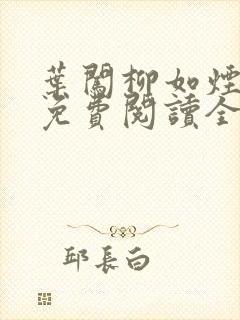 葉闖柳如煙
免費閱讀全
邱長白